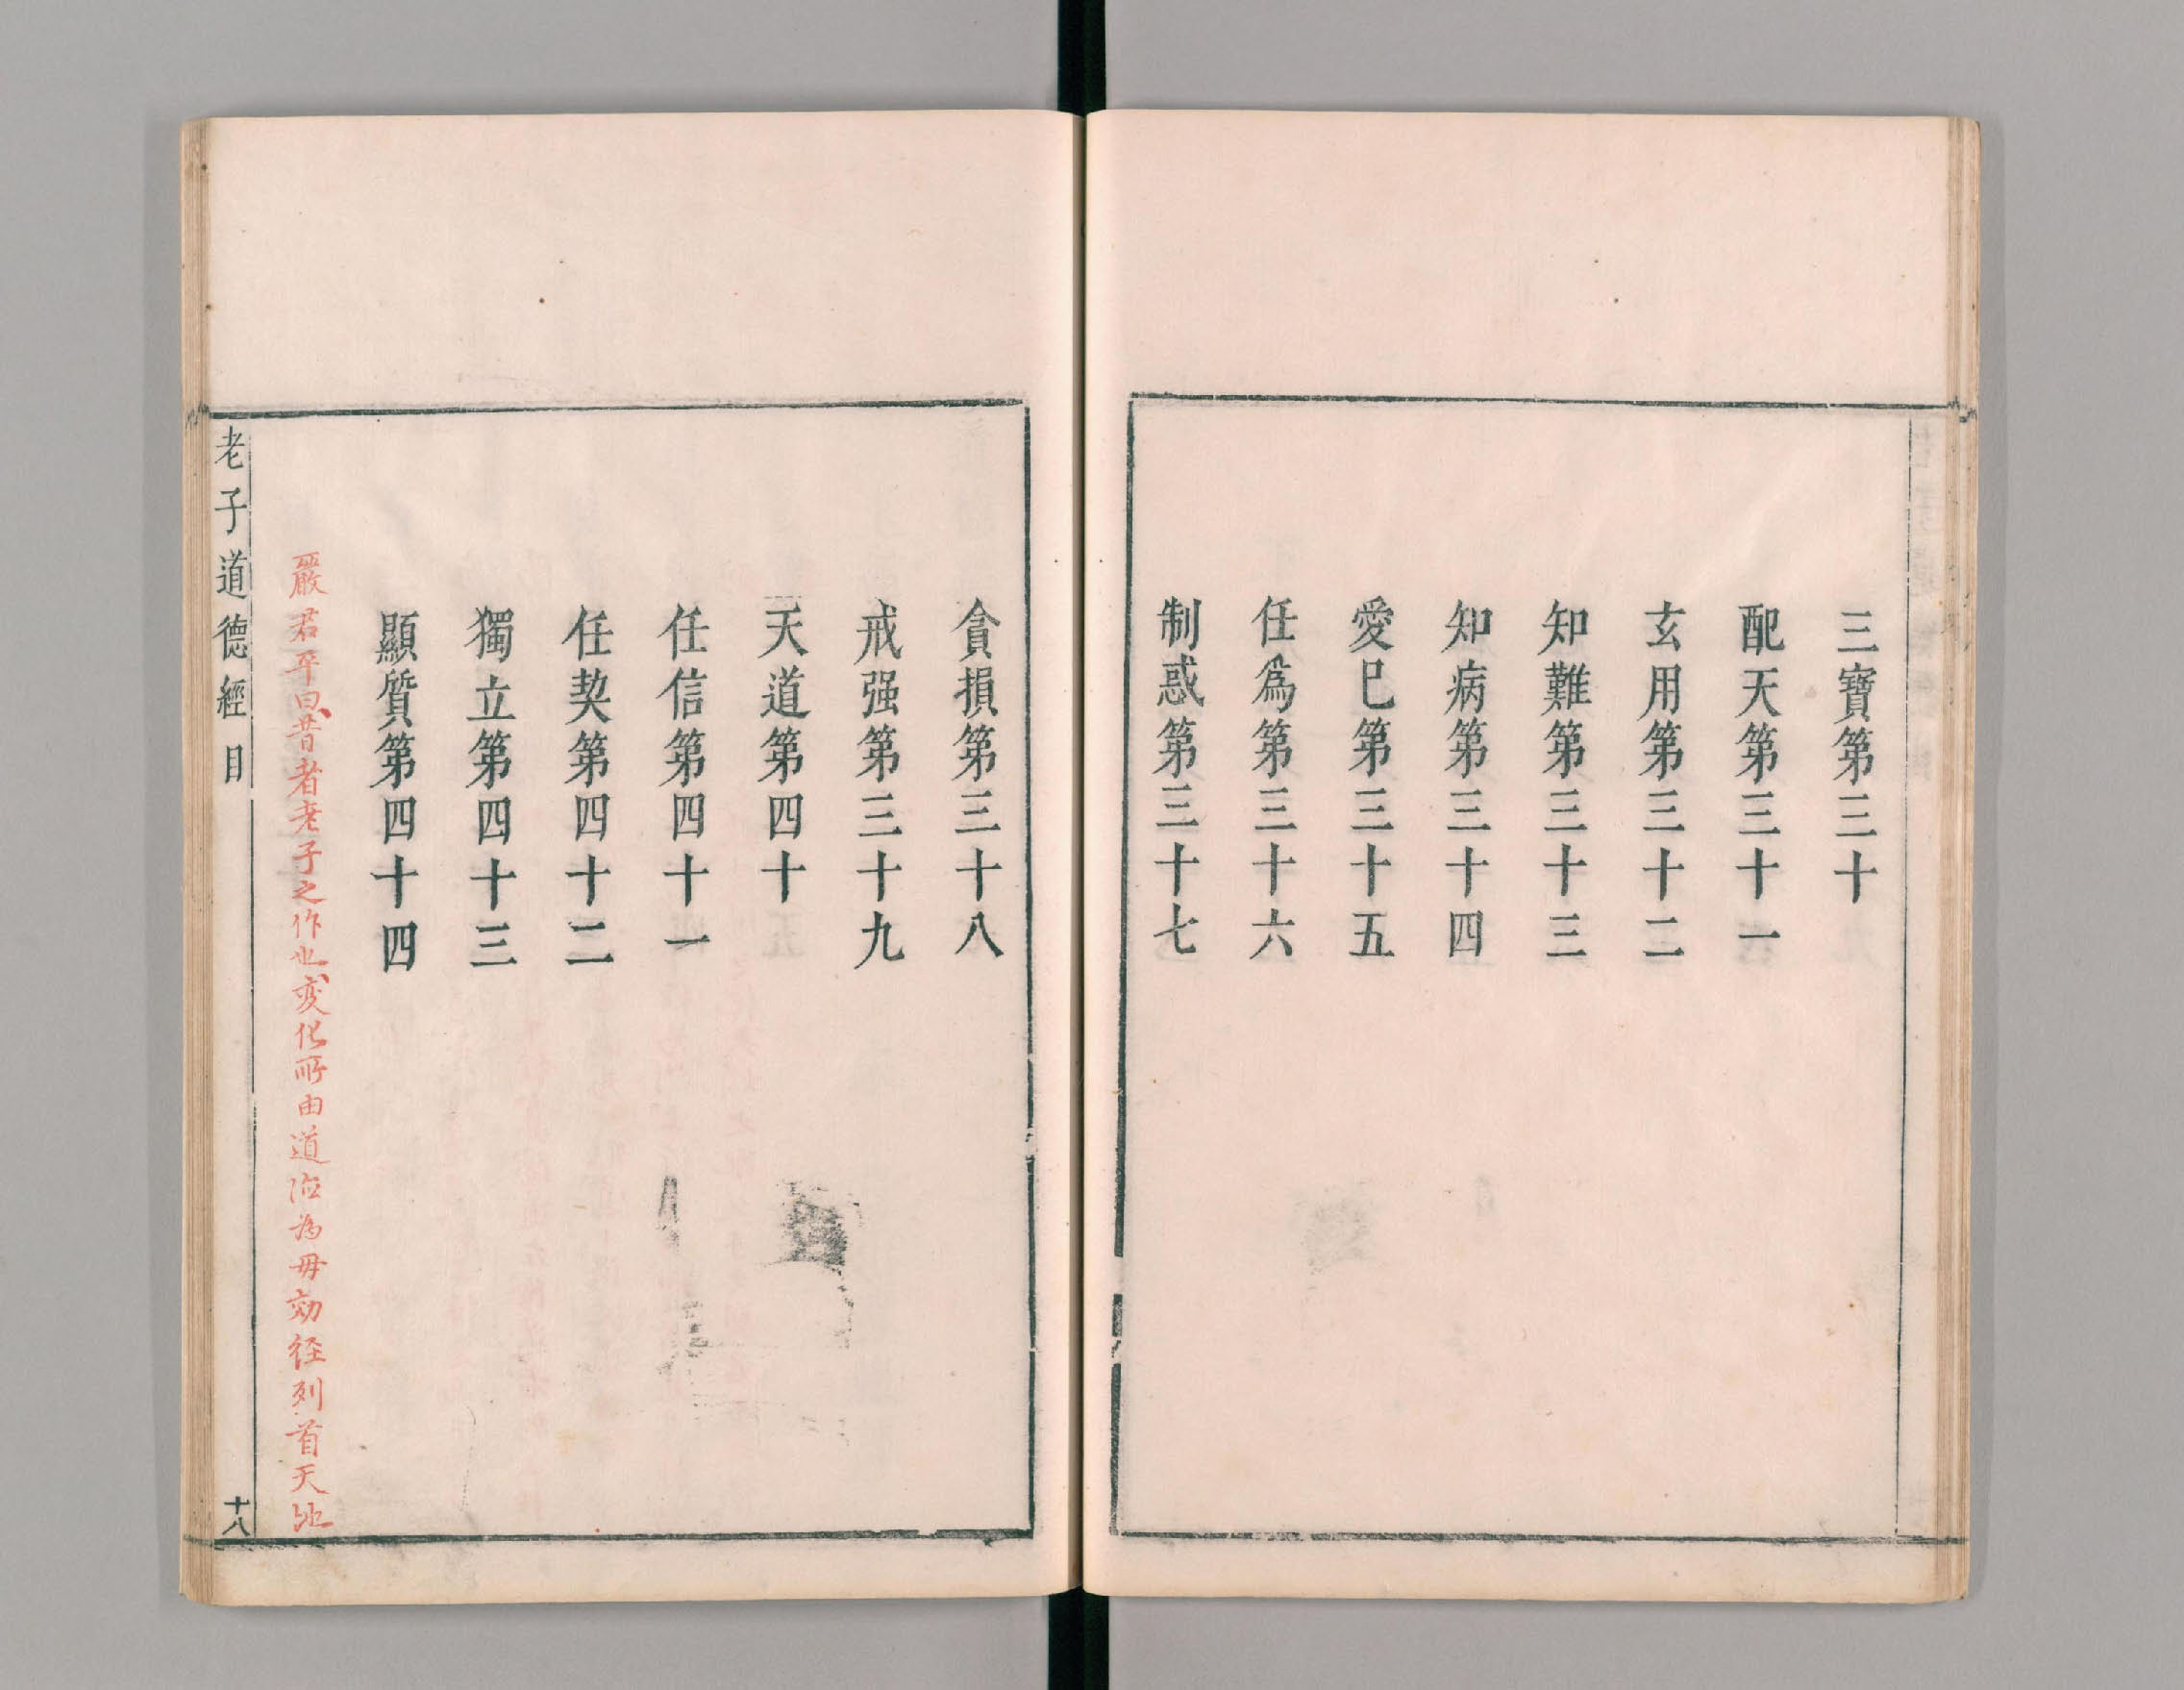 三寶第三十
配天第三十一
玄用第三十二
知難第三十三
知病第三十四
愛巳第三十五
任爲第三十六
制惑第三十七
貪損第三十八
戒强第三十九
天道第四十
任信第四十一
任契第四十二
獨立第四十三
顯質第四十四
嚴君平曰昔者老子之作也変化所由道徳為毋効経列首天地
老子道德經 目
十八